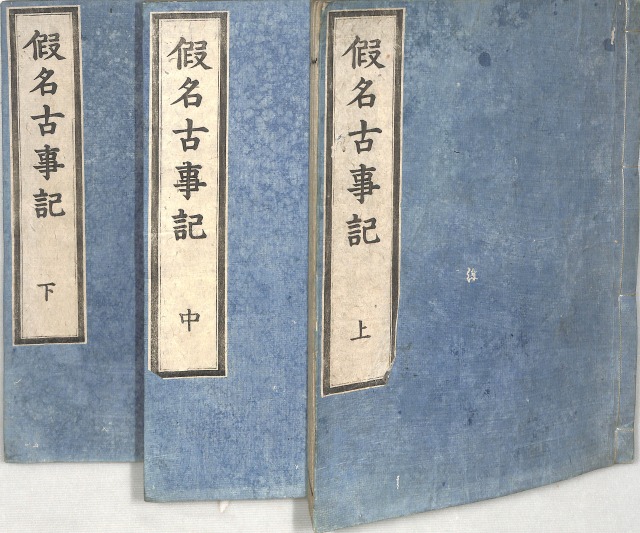 假名古事記 上
假名古事記 中
假名古事記 下